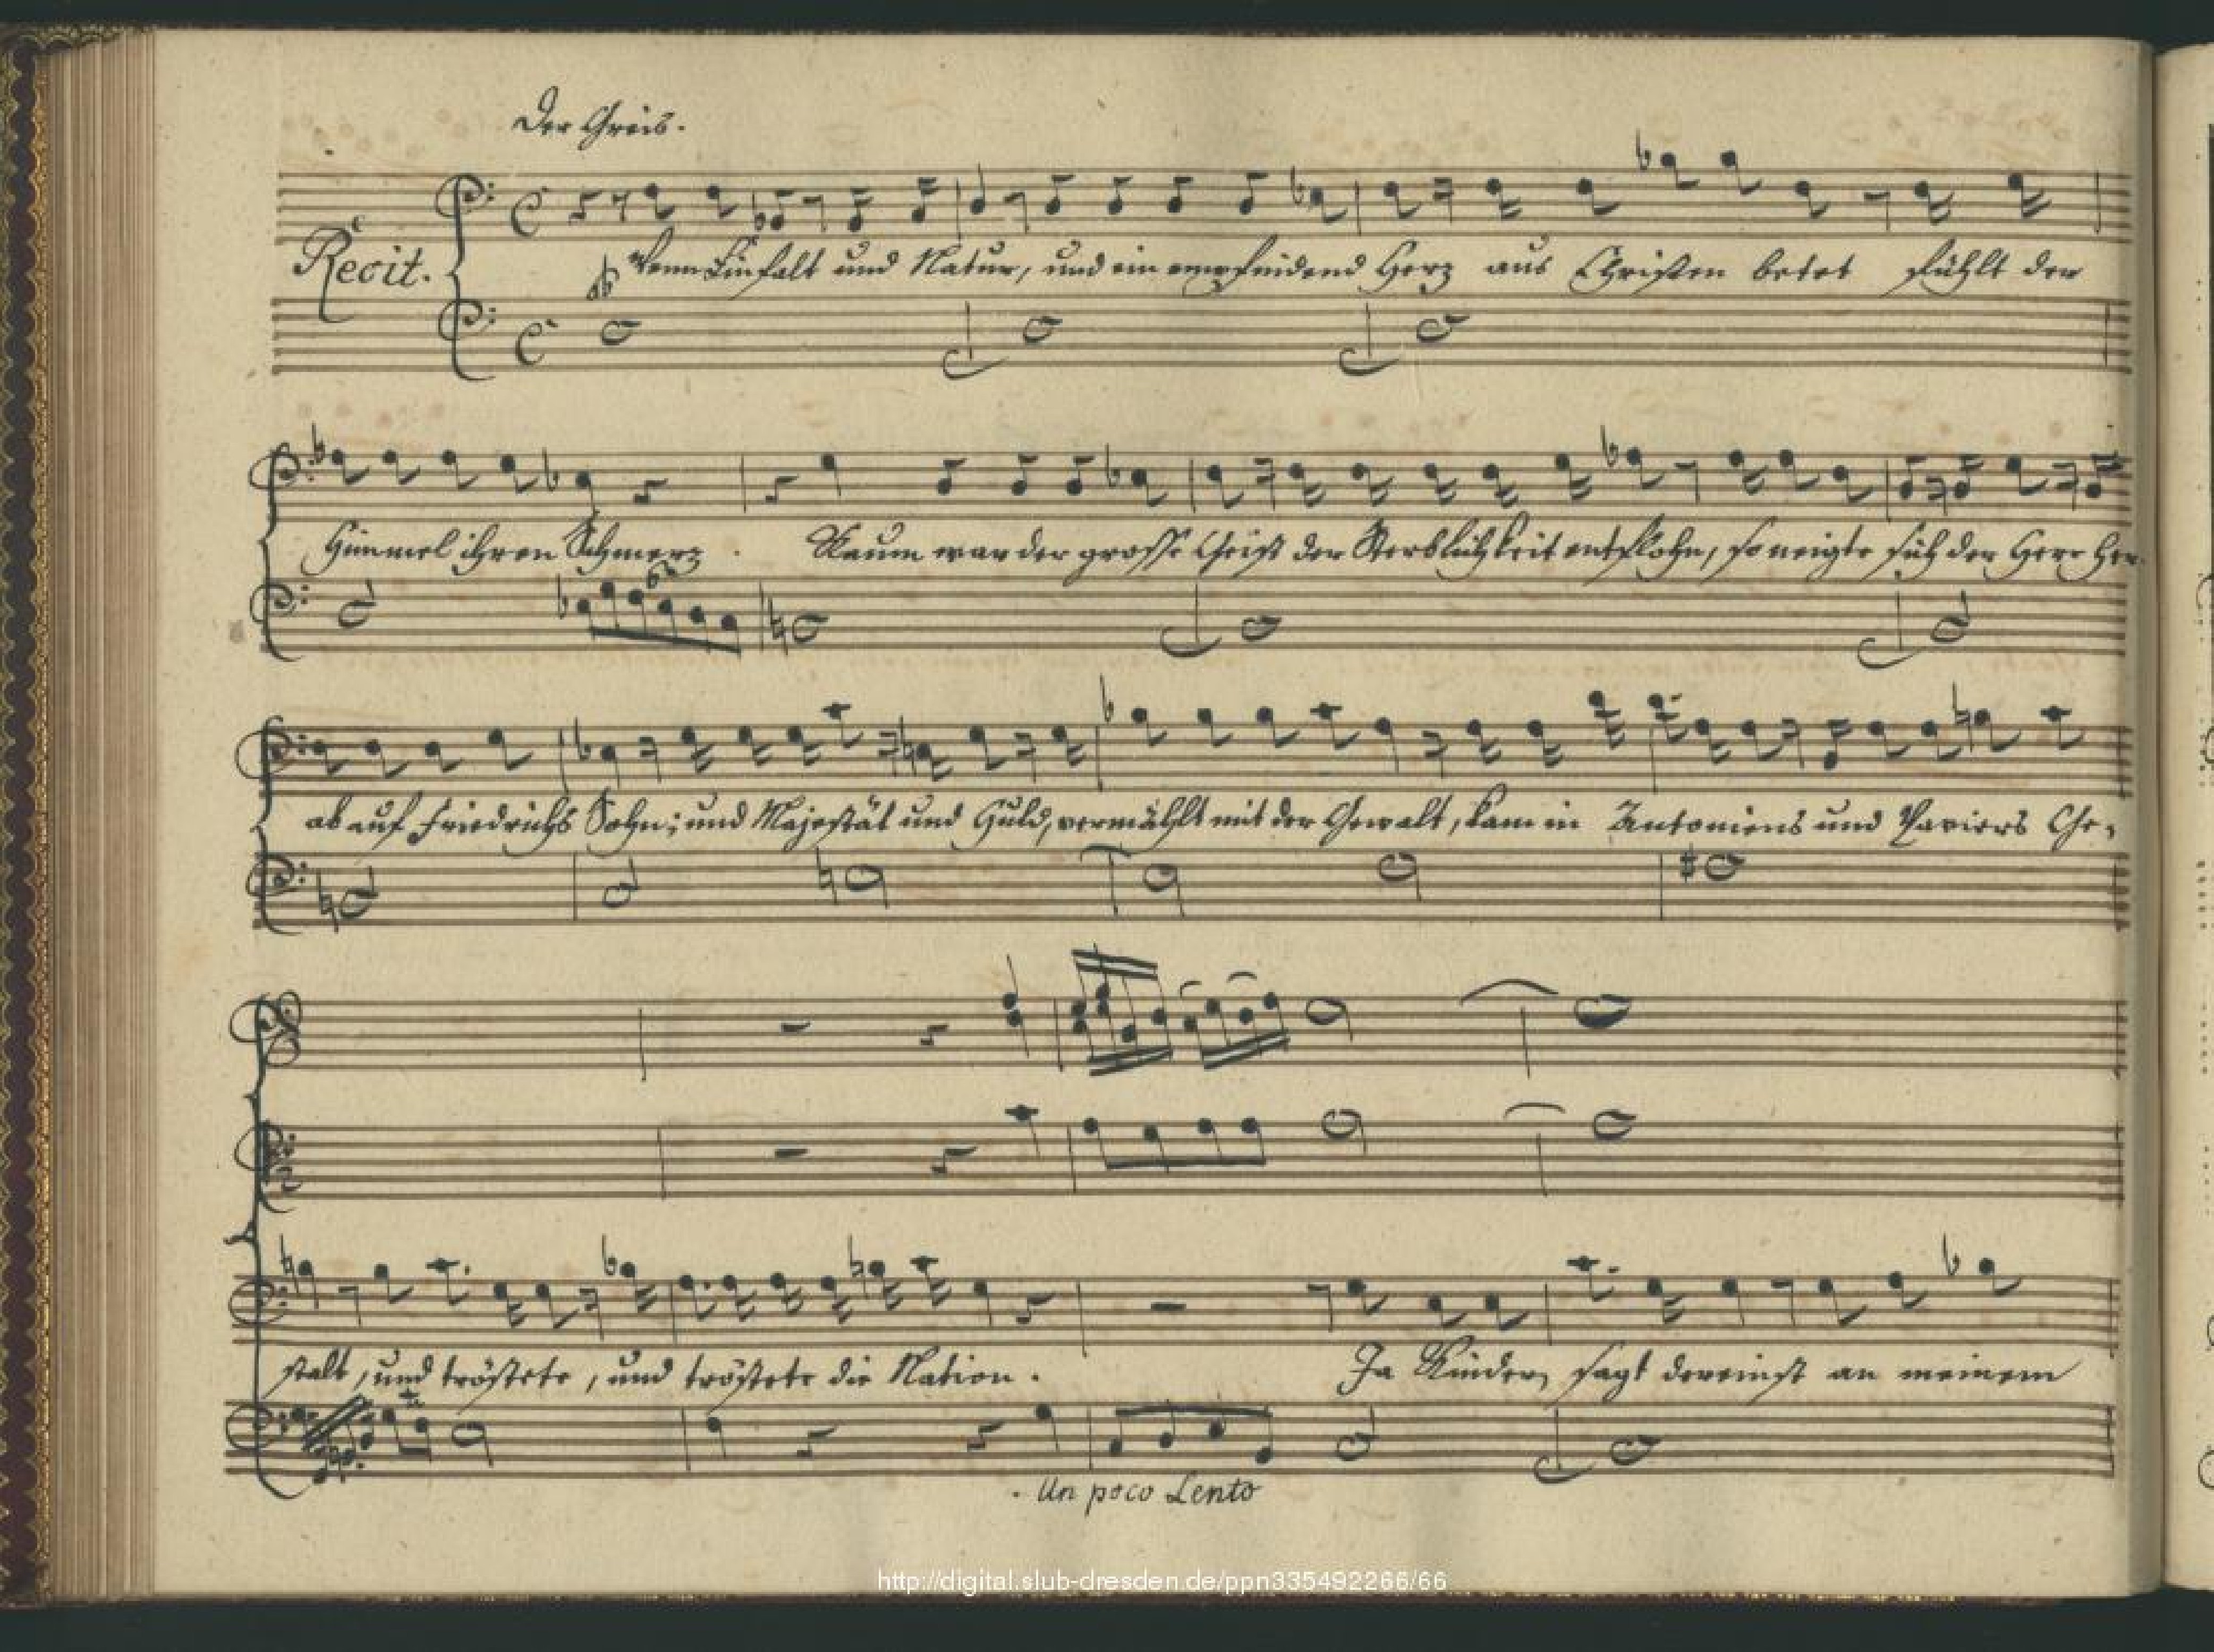 Der Greis.
Recit.
Wenn Einfalt und Natur, und ein empfindend Herz aus Christen betet fühlt der
Himmel ihren Schmerz. Kaum war der grosse Geist der Sterblichkeit entflohn, so neigte sich der Herr her-
ab auf Friedrichs Sohn; und Majestät und Huld, vermählt mit der Gewalt, kam in Antoniens und Xaviers Ge-
stalt, und tröstete, und tröstete die Nation. Ja Kinder, sagt dereinst an meinem
Un poco Lento
http://digital.slub-dresden.de/ppn335492266/66